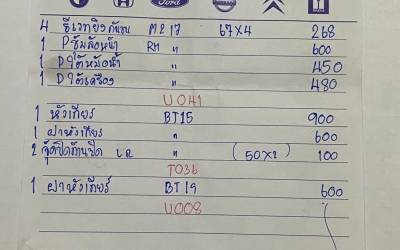 Ford
4 รีเวทยิงกันชน M217 67X4 268
1 P.ซุ้มล้อหน้า RH " 600
1 D.ใต้หม้อน้ำ 450
1 D.ใต้เครื่อง 480
U041
1 หัวเกียร์ BT15 900
1 ฝาหัวเกียร์ " 600
2 จุ๊ดปิดก้านปัด LR " (50X2) 100
T036
1 ฝาหัวเกียร์ BT19 600
U008